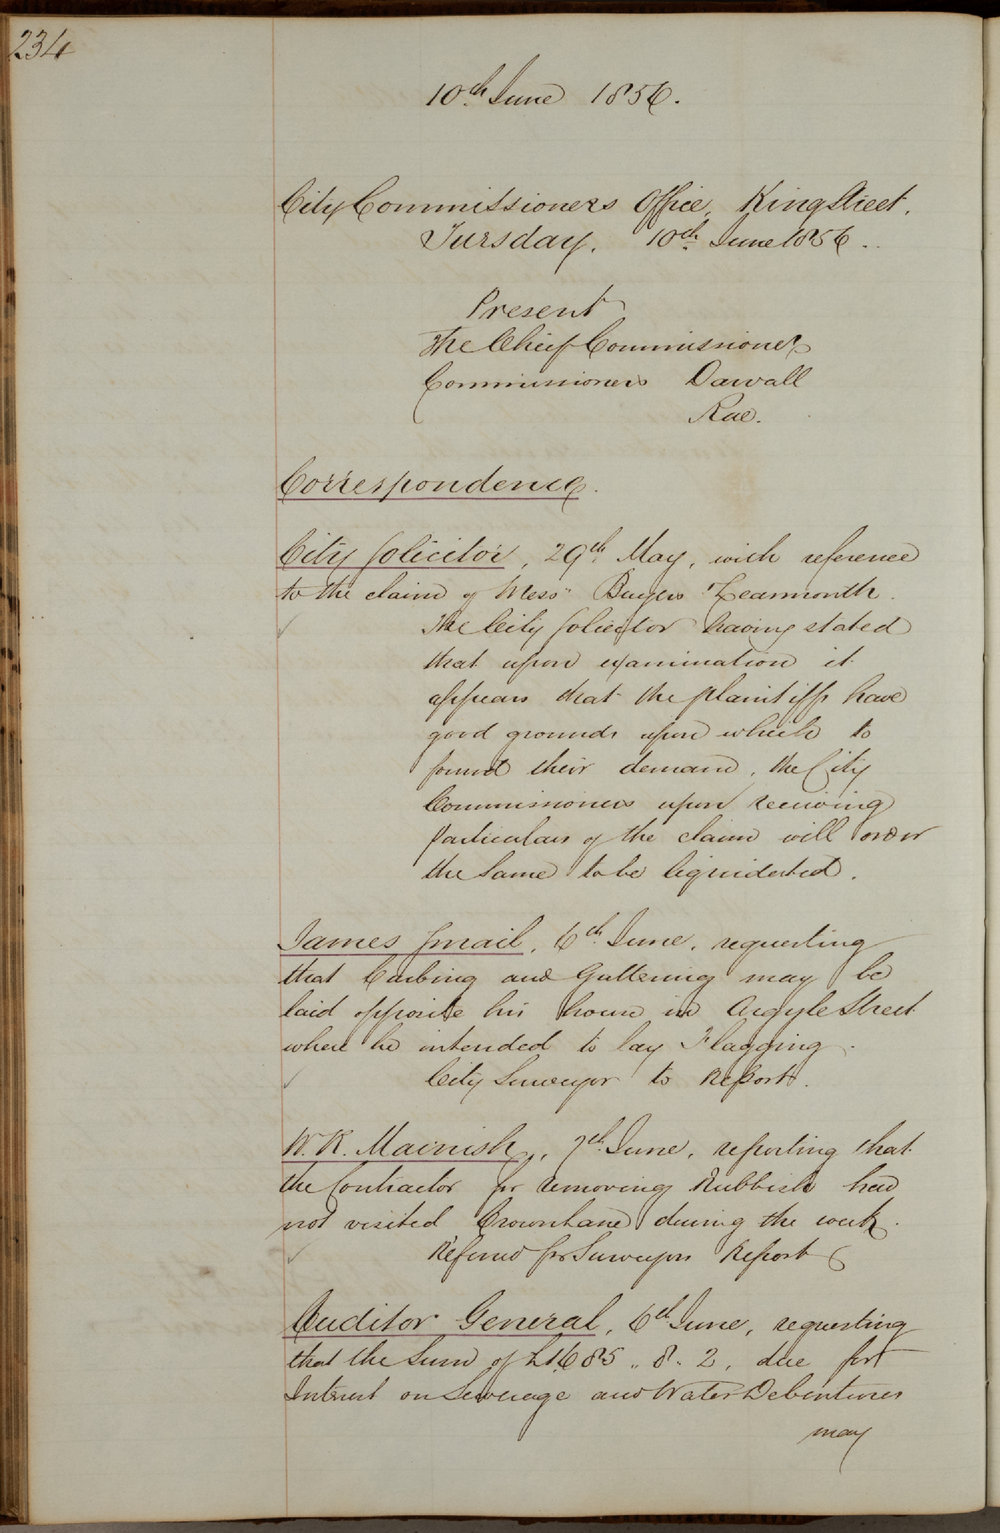 234
10th June 1856.
City Commissioners Office, King Street,
Tuesday, 10th June 1856.
Present
The Chief Commissioner
Commissioners Darvall
Rae.
Correspondence.
City Solicitor, 29th May, with reference
to the claim of Mess" Buyers & Learmonth.
The City Solicitor having stated
that upon examination it
appears that the plaintiffs have
good grounds upon which to
found their demand, the City
Commissioners upon receiving
particulars of the claim will order
the same to be liquidated.
James Smail, 6th June, requesting
that Curbing and Guttering may be
laid opposite his house in Argyle Street
where he intended to lay Flagging.
City Surveyor to Report.
W. R. Macnish, 7th June, reporting that
the Contractor for removing Rubbish had
not visited Crown Lane during the week.
Referred for Surveyors Report
Auditor General, 6th June, requesting
that the Sum of £1685 " 8 . 2, due for
Interest on Sewerage and Water Debentures
may